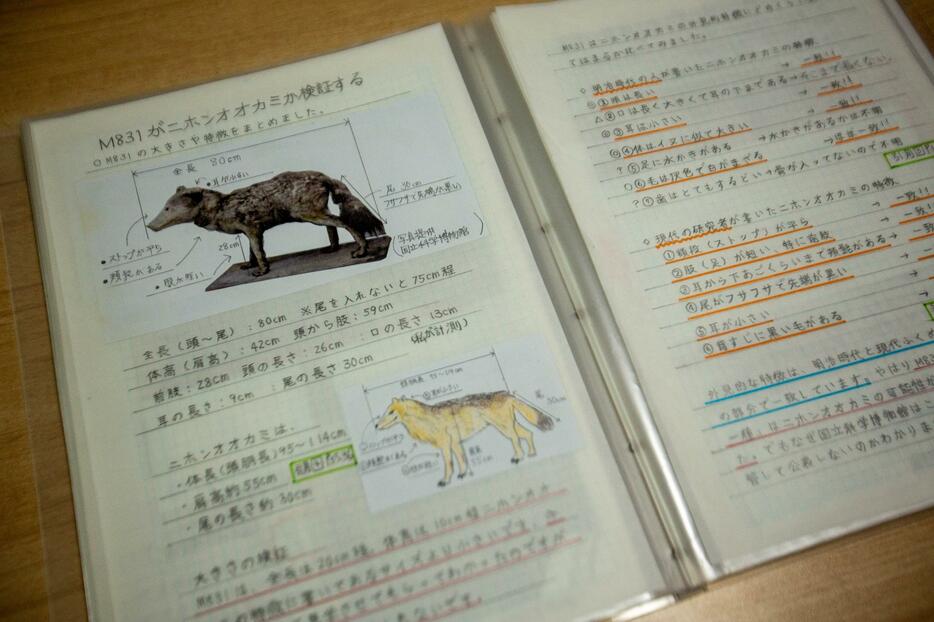 M831がニホンオオカミか検証する
○M831の大きさや特徴をまとめました。
全長 80cm
・耳が小さい
尾 30cm
フサフサで先端が黒い
・ストップが平ら
・頬髭がある
・肢が短い
28cm
(写真提供
国立科学博物館)
全長(頭〜尾):80cm ※尾を入れないと75cm程
体高(肩高):42cm 頭から肢:59cm
前肢:28cm 頭の長さ:26cm 口の長さ13cm
耳の長さ:9cm 尾の長さ30cm (私が計測)
ニホンオオカミは、
・体長(頭胴長)95〜114cm
・肩高約55cm
・尾の長さ約30cm
尾
30cm
55cm
大きさの検証
M831は、全長は20cm程、体高は10cm程ニホンオオ
M831はニホンオオカミの外見的特徴に
てはまるか比べてみました。
◇明治時代の人が書いたニホンオオカミの特徴
◎①頭は長い → 一致!!
△②口は長く大きくて耳の下まである→そこまで長くない。
◎③耳は小さい → 一致!!
◎④体はイヌに似て大きい → 一致!!
?⑤足に水かきがある →水かきがあるかは不明
○⑥毛は灰色で白がまざる →ほぼ一致!!
?⑦歯はとてもするどい→骨が入ってないので不明
◇現代の研究者が書いたニホンオオカミの特徴
①額段(ストップ)が平ら → 一致!!
②肢(足)が短い、特に前肢 → 一致!!
③耳から下あごくらいまで頬髭がある→ 一致
④尾がフサフサで先端が黒い →
⑤耳が小さい
⑥背すじに黒い毛がある →
外見的な特徴は、明治時代と現代ふく
の部分で一致しています。やはりM83
一種」はニホンオオカミの可能性が
た。でもなぜ国立科学博物館はこ
管して公表しないのかわかりま